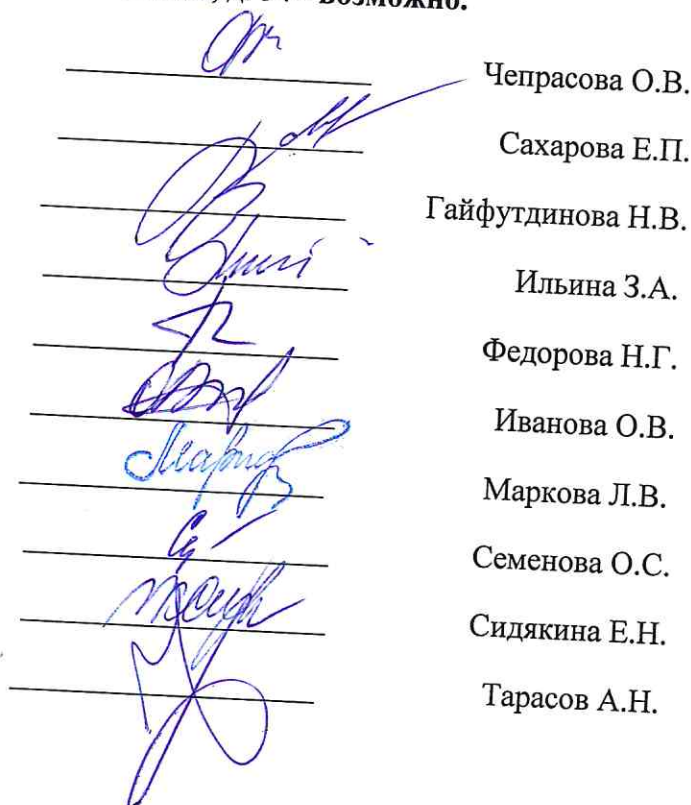 возможно.
Чепрасова О.В.
Сахарова Е.П.
Гайфутдинова Н.В.
Ильина З.А.
Федорова Н.Г.
Иванова О.В.
Маркова Л.В.
Семенова О.С.
Сидякина Е.Н.
Тарасов А.Н.